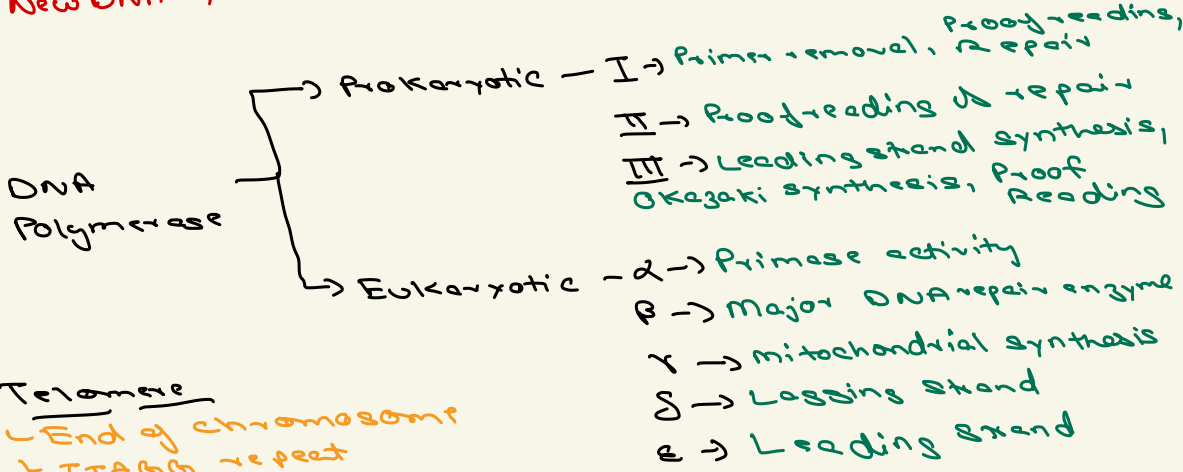 New DNA
DNA
Polymerase
Prokaryotic – I → Primer removal, Proofreading,
Repair
II → Proofreading & repair
III → Leading strand synthesis,
Okazaki synthesis, Proof
Reading
Eukaryotic – α → Primase activity
β → Major DNA repair enzyme
γ → mitochondrial synthesis
δ → Lagging strand
ε → Leading strand
Telomere
End of chromosome
repeat